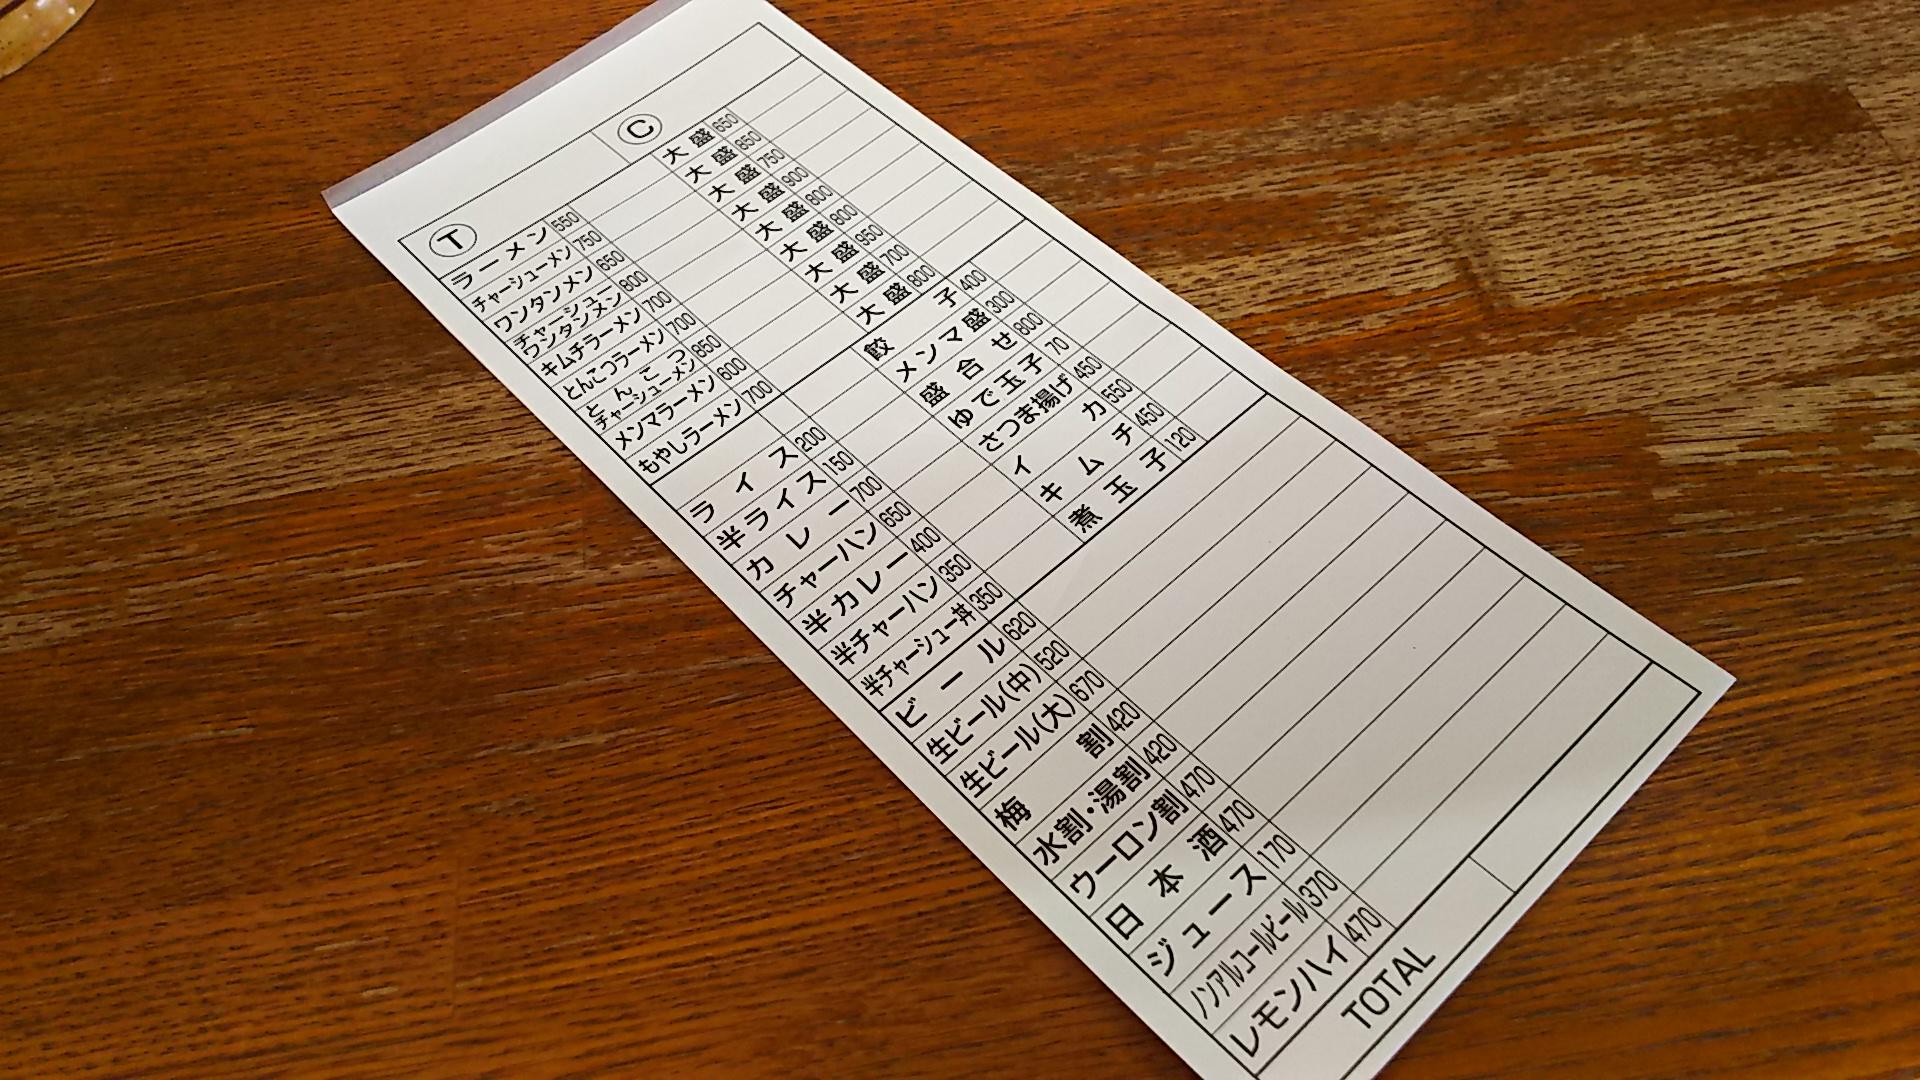 Ⓣ Ⓒ
ラーメン 550 大盛 650
チャーシューメン 750 大盛 850
ワンタンメン 650 大盛 750
チャーシューワンタンメン 800 大盛 900
キムチラーメン 700 大盛 800
とんこつラーメン 700 大盛 800
とんこつチャーシューメン 850 大盛 950
メンマラーメン 600 大盛 700
もやしラーメン 700 大盛 800
ライス 200 餃子 400
半ライス 150 メンマ盛 300
カレー 700 盛合せ 800
チャーハン 650 ゆで玉子 70
半カレー 400 さつま揚げ 450
半チャーハン 350 イカ 550
半チャーシュー丼 350 キムチ 450
煮玉子 120
ビール 620
生ビール(中) 520
生ビール(大) 670
梅割 420
水割・湯割 420
ウーロン割 470
日本酒 470
ジュース 170
ノンアルコールビール 370
レモンハイ 470
TOTAL